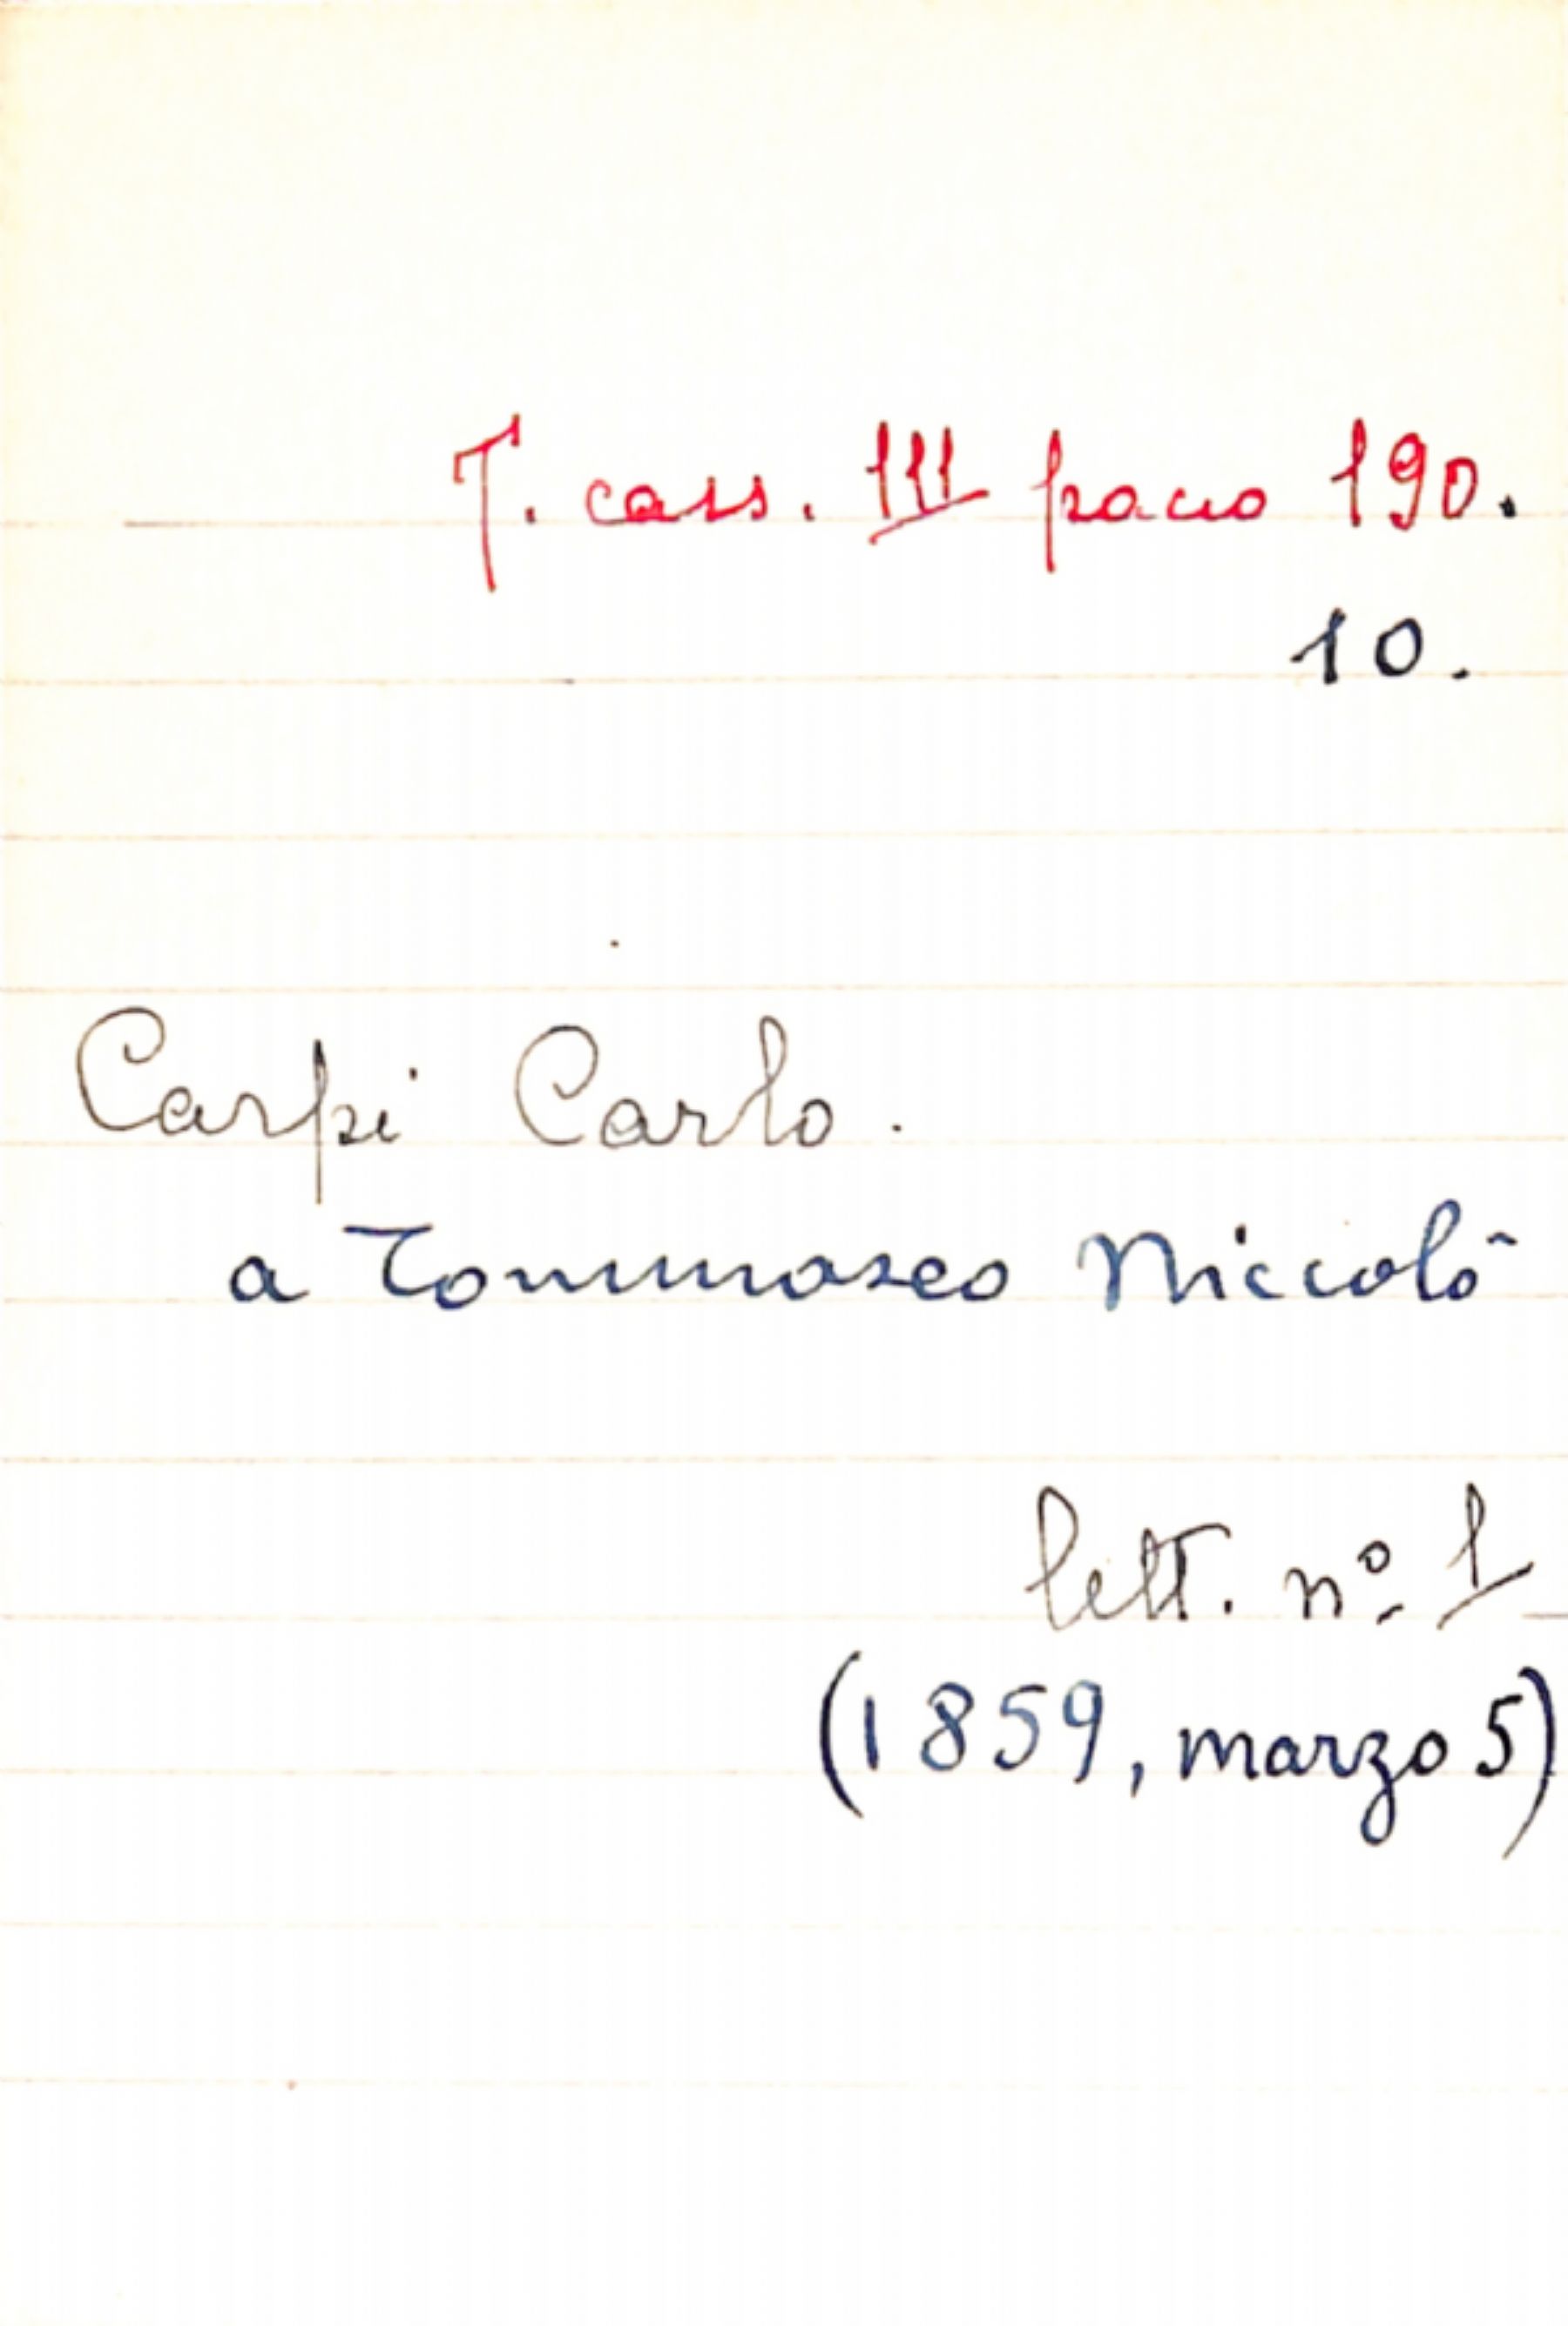 T. cass. III pacco 190.
10.
Carpi Carlo.
a Tommaseo Niccolò
lett. nº 1
(1859, marzo 5)